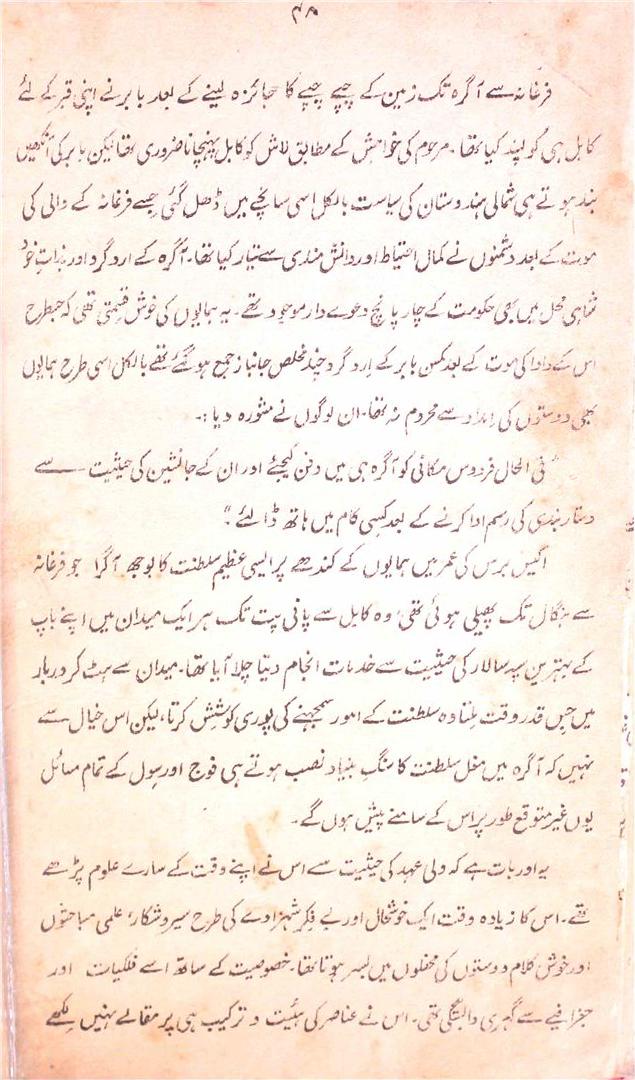 ۴۸
فرغانہ سے آگرہ تک زمین کے چپے چپے کا جائزہ لینے کے بعد بابر نے اپنی قبر کے لئے
کابل ہی کو پسند کیا تھا۔ مرحوم کی خواہش کے مطابق لاش کو کابل پہنچانا ضروری تھا لیکن بابر کی آنکھیں
بند ہوتے ہی شمالی ہندوستان کی سیاست بالکل اسی سانچے میں ڈھل گئی جسے فرغانہ کے والی کی
موت کے بعد دشمنوں نے کمال احتیاط اور دانش مندی سے تیار کیا تھا۔ آگرہ کے ارد گرد اور بذاتِ خود
شاہی محل میں بھی حکومت کے چار پانچ دعوے دار موجود تھے۔ یہ ہمایوں کی خوش قسمتی تھی کہ جسطرح
اس کے دادا کی موت کے بعد کمسن بابر کے ارد گرد چند مخلص جانباز جمع ہو گئے تھے بالکل اسی طرح ہمایوں
بھی دوستوں کی امداد سے محروم نہ تھا۔ ان لوگوں نے مشورہ دیا :۔
"فی الحال فردوس مکانی کو آگرہ ہی میں دفن کیجئے اور ان کے جانشین کی حیثیت سے
دستار بندی کی رسم ادا کرنے کے بعد کسی کام میں ہاتھ ڈالئے"۔
اکیس برس کی عمر میں ہمایوں کے کندھے پر ایسی عظیم سلطنت کا بوجھ آگرا جو فرغانہ
سے بنگال تک پھیلی ہوئی تھی، وہ کابل سے پانی پت تک ہر ایک میدان میں اپنے باپ
کے بہترین سپہ سالار کی حیثیت سے خدمات انجام دیتا چلا آیا تھا۔ میدان سے ہٹ کر دربار
میں جس قدر وقت ملتا وہ سلطنت کے امور سمجھنے کی پوری کوشش کرتا، لیکن اس خیال سے
نہیں کہ آگرہ میں مغل سلطنت کا سنگِ بنیاد نصب ہوتے ہی فوج اور سول کے تمام مسائل
یوں غیر متوقع طور پر اس کے سامنے پیش ہوں گے۔
یہ اور بات ہے کہ ولی عہد کی حیثیت سے اس نے اپنے وقت کے سارے علوم پڑھے
تھے۔ اس کا زیادہ وقت ایک خوشحال اور بے فکر شہزادے کی طرح سیر و شکار، علمی مباحثوں
اور خوش کلام دوستوں کی محفلوں میں بسر ہوتا تھا۔ خصوصیت کے ساتھ اسے فلکیات اور
جغرافیے سے گہری وابستگی تھی۔ اس نے عناصر کی ہئیت و ترکیب ہی پر مقالے نہیں لکھے